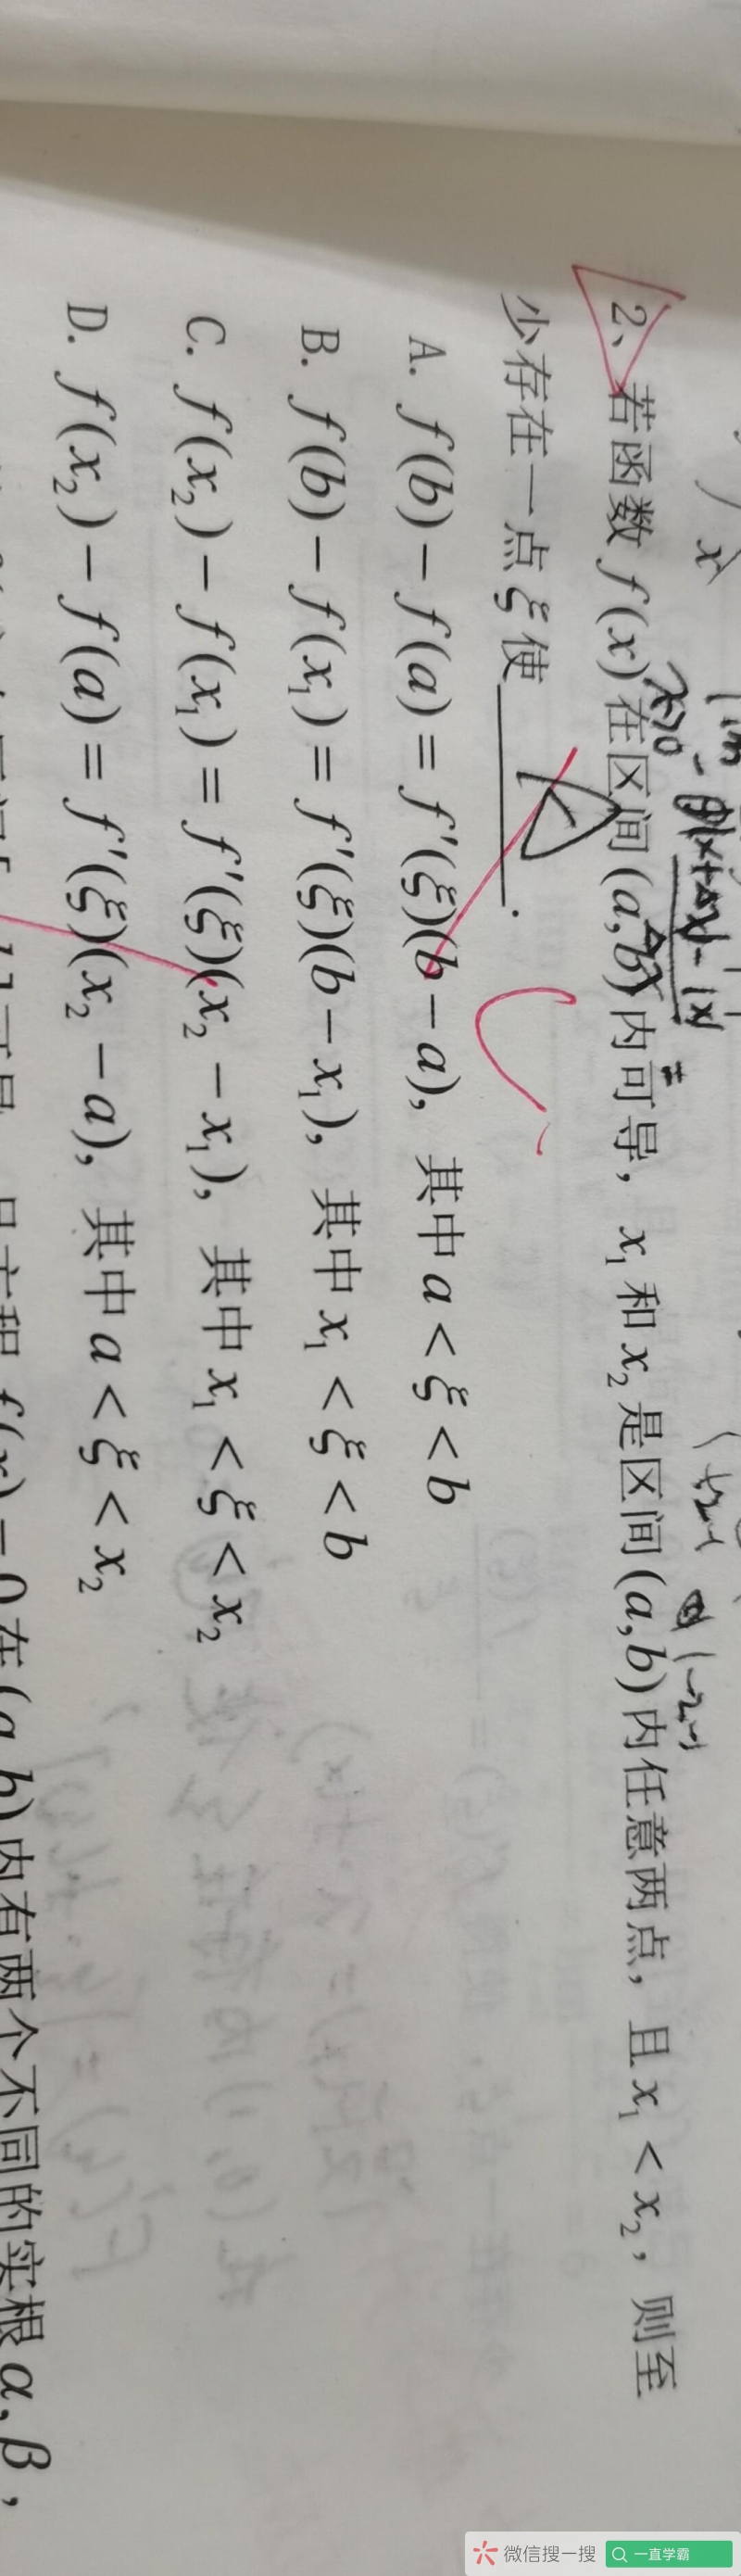 2、若函数 f(x) 在区间 (a,b) 内可导，x₁ 和 x₂ 是区间 (a,b) 内任意两点，且 x₁ < x₂，则至
少存在一点 ξ 使______.
A. f(b) − f(a) = f′(ξ)(b − a)，其中 a < ξ < b
B. f(b) − f(x₁) = f′(ξ)(b − x₁)，其中 x₁ < ξ < b
C. f(x₂) − f(x₁) = f′(ξ)(x₂ − x₁)，其中 x₁ < ξ < x₂
D. f(x₂) − f(a) = f′(ξ)(x₂ − a)，其中 a < ξ < x₂
f(x) = 0 在 (a,b) 内有两个不同的实根 α,β，
微信搜一搜
一直学霸